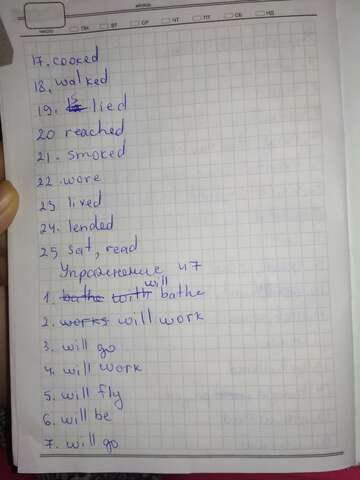 число ПН ВТ СР ЧТ ПТ СБ НД
17. cooked
18. walked
19. lied
20 reached
21. smoked
22. wore
23 lived
24. lended
25 sat, read
Упражнение 47
1. bathe with will bathe
2. works will work
3. will go
4. will work
5. will fly
6. will be
7. will go